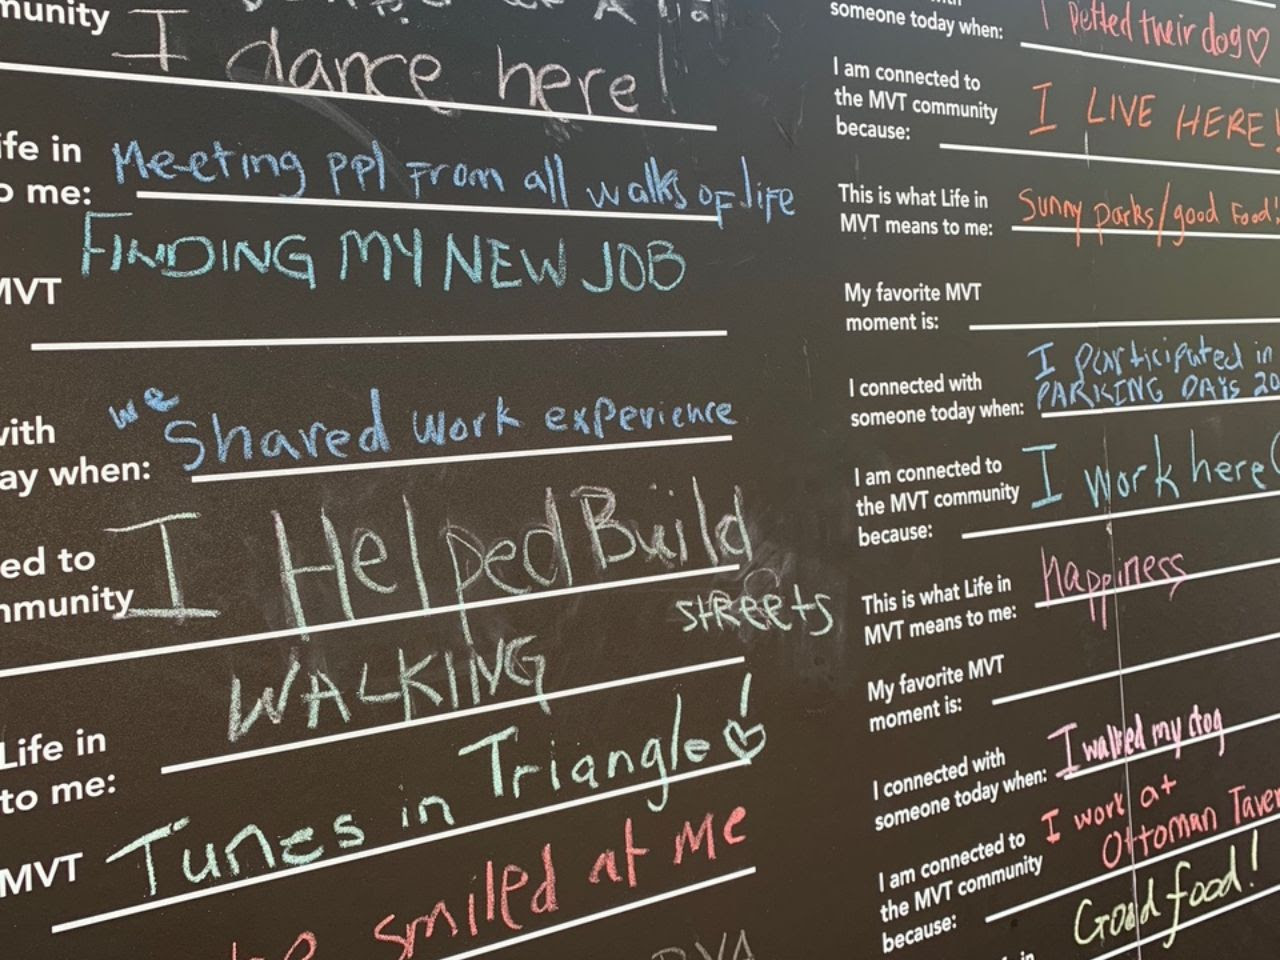 munity
I dance here!
ife in
o me:
Meeting ppl From all walks of life
FINDING MY NEW JOB
MVT
with
ay when:
we
Shared work experience
ed to
mmunity
I Helped Build
streets
WALKING
Life in
to me:
Tunes in Triangle!
MVT
smiled at me
someone today when:
I petted their dog
I am connected to
the MVT community
because:
I LIVE HERE!
This is what Life in
MVT means to me:
Sunny parks/good food!
My favorite MVT
moment is:
I connected with
someone today when:
I participated in
PARKING DAYS 20
I am connected to
the MVT community
because:
I work here
This is what Life in
MVT means to me:
happiness
My favorite MVT
moment is:
I connected with
someone today when:
I walked my dog
I am connected to
the MVT community
because:
I work at
Ottoman Taver
Good food!